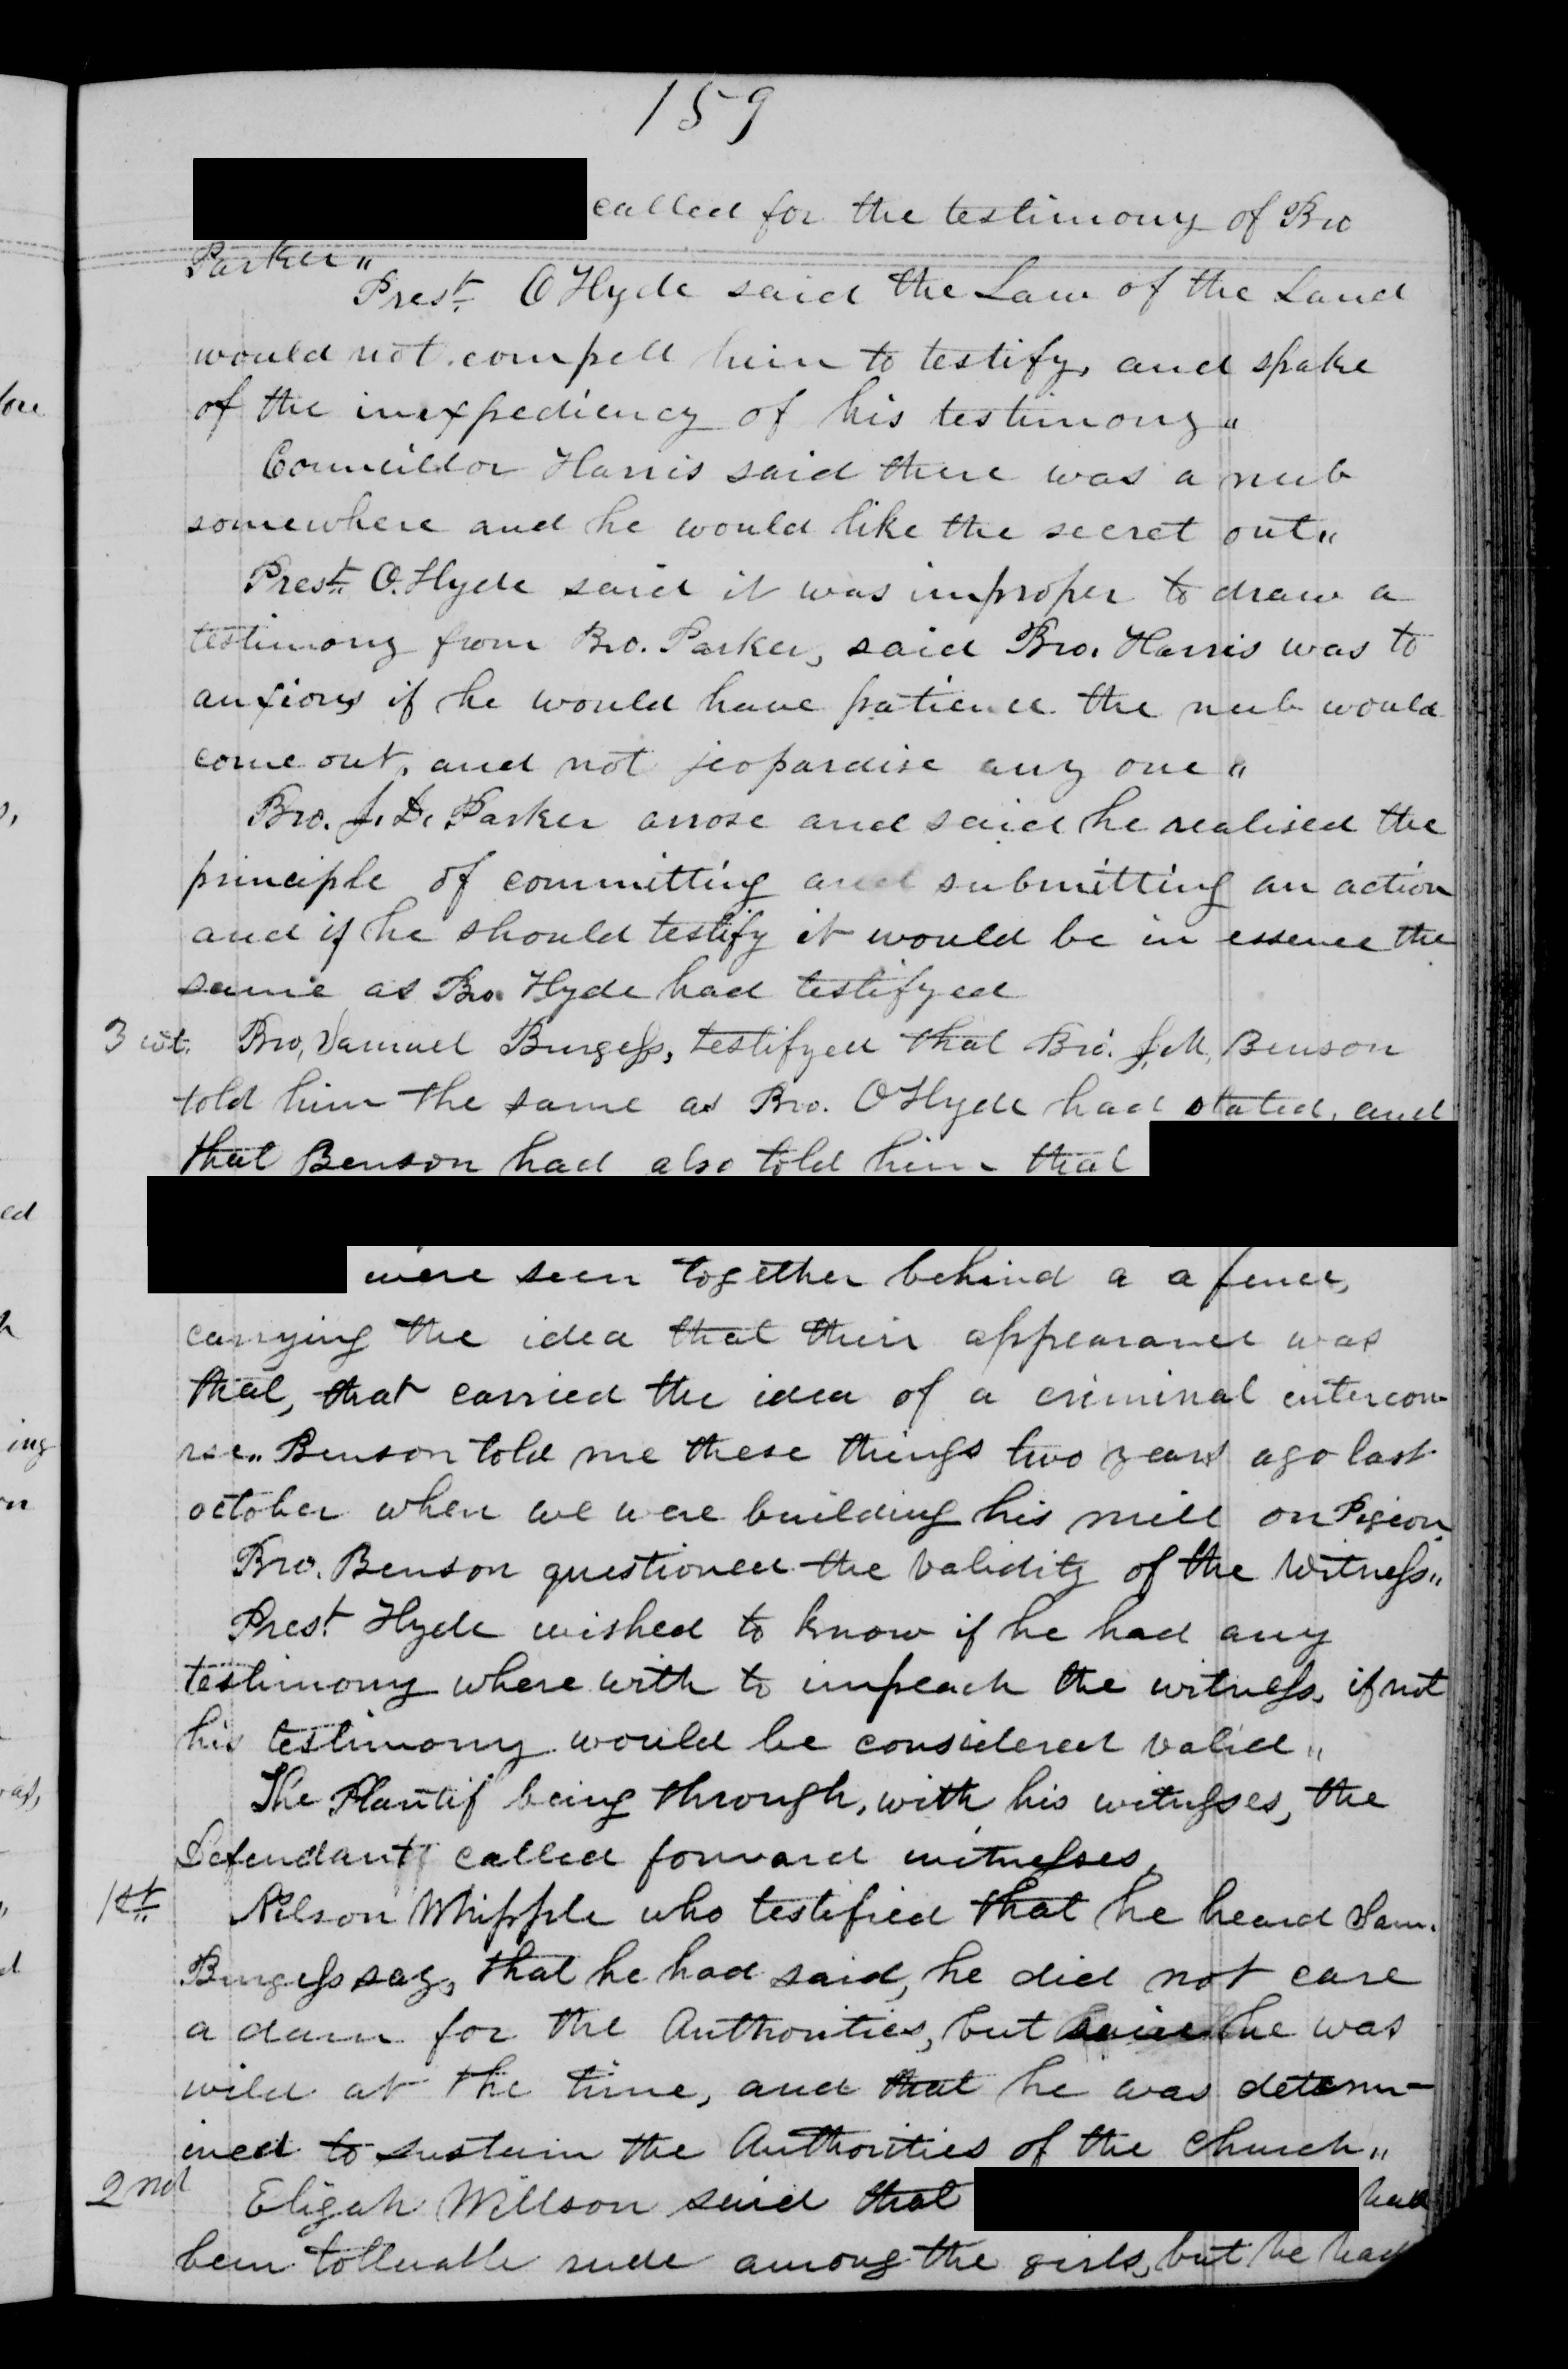 159
called for the testimony of Bro
Parker "
Prest. O Hyde said the Law of the Land
would not compell him to testify, and spake
of the inexpediency of his testimony "
Councillor Harris said there was a nub
somewhere and he would like the secret out "
Prest. O. Hyde said it was improper to draw a
testimony from Bro. Parker, said Bro. Harris was to
anxious if he would have patience the nub would
come out, and not jeopardise any one "
Bro. J. D. Parker arrose and said he realised the
principle of committing and submitting an action
and if he should testify it would be in essence the
same as Bro. Hyde had testifyed
3 wt. Bro. Samuel Burgess, testifyed that Bro. J. M. Benson
told him the same as Bro. O Hyde had stated, and
that Benson had also told him that
were seen together behind a a fence,
carrying the idea that their appearance was
that, that carried the idea of a criminal intercou
rse " Benson told me these things two years ago last
october when we were building his mill on Pigeon
Bro. Benson questioned the validity of the witness "
Prest Hyde wished to know if he had any
testimony where with to impeach the witness, if not
his testimony would be considered valid "
The Plantif being through, with his witnesses, the
Defendant called forward witnesses,
1st Nelson Whipple who testified that he heard Sam.
Burgess say, that he had said, he did not care
a dam for the Authorities, but he was
wild at the time, and that he was determ-
ined to sustain the Authorities of the Church "
2nd Eligah Willson said that had
been tolluable rude among the girls, but he had